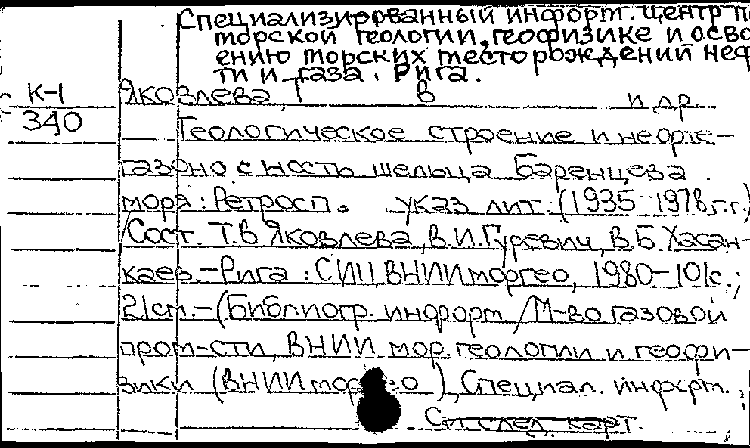 Специализированный информ. центр п
морской геологии, геофизике и осво
ению морских месторождений неф
ти и газа. Рига.
К-1 Яковлева, Т В и др.
340 Геологическое строение и нефте-
газоносность шельфа Баренцева
моря: Ретросп. указ лит. (1935-1978г.г.)
/Сост. Т.В Яковлева, В.И.Гуревич, В.Б. Хасан-
каев.-Рига: СИЦ ВНИИморгео, 1980-101с.;
21см.-(Библиогр. информ /М-во газовой
пром-сти, ВНИИ мор. геологии и геофи-
зики (ВНИИморгео), Специал. информ.
См след. карт.